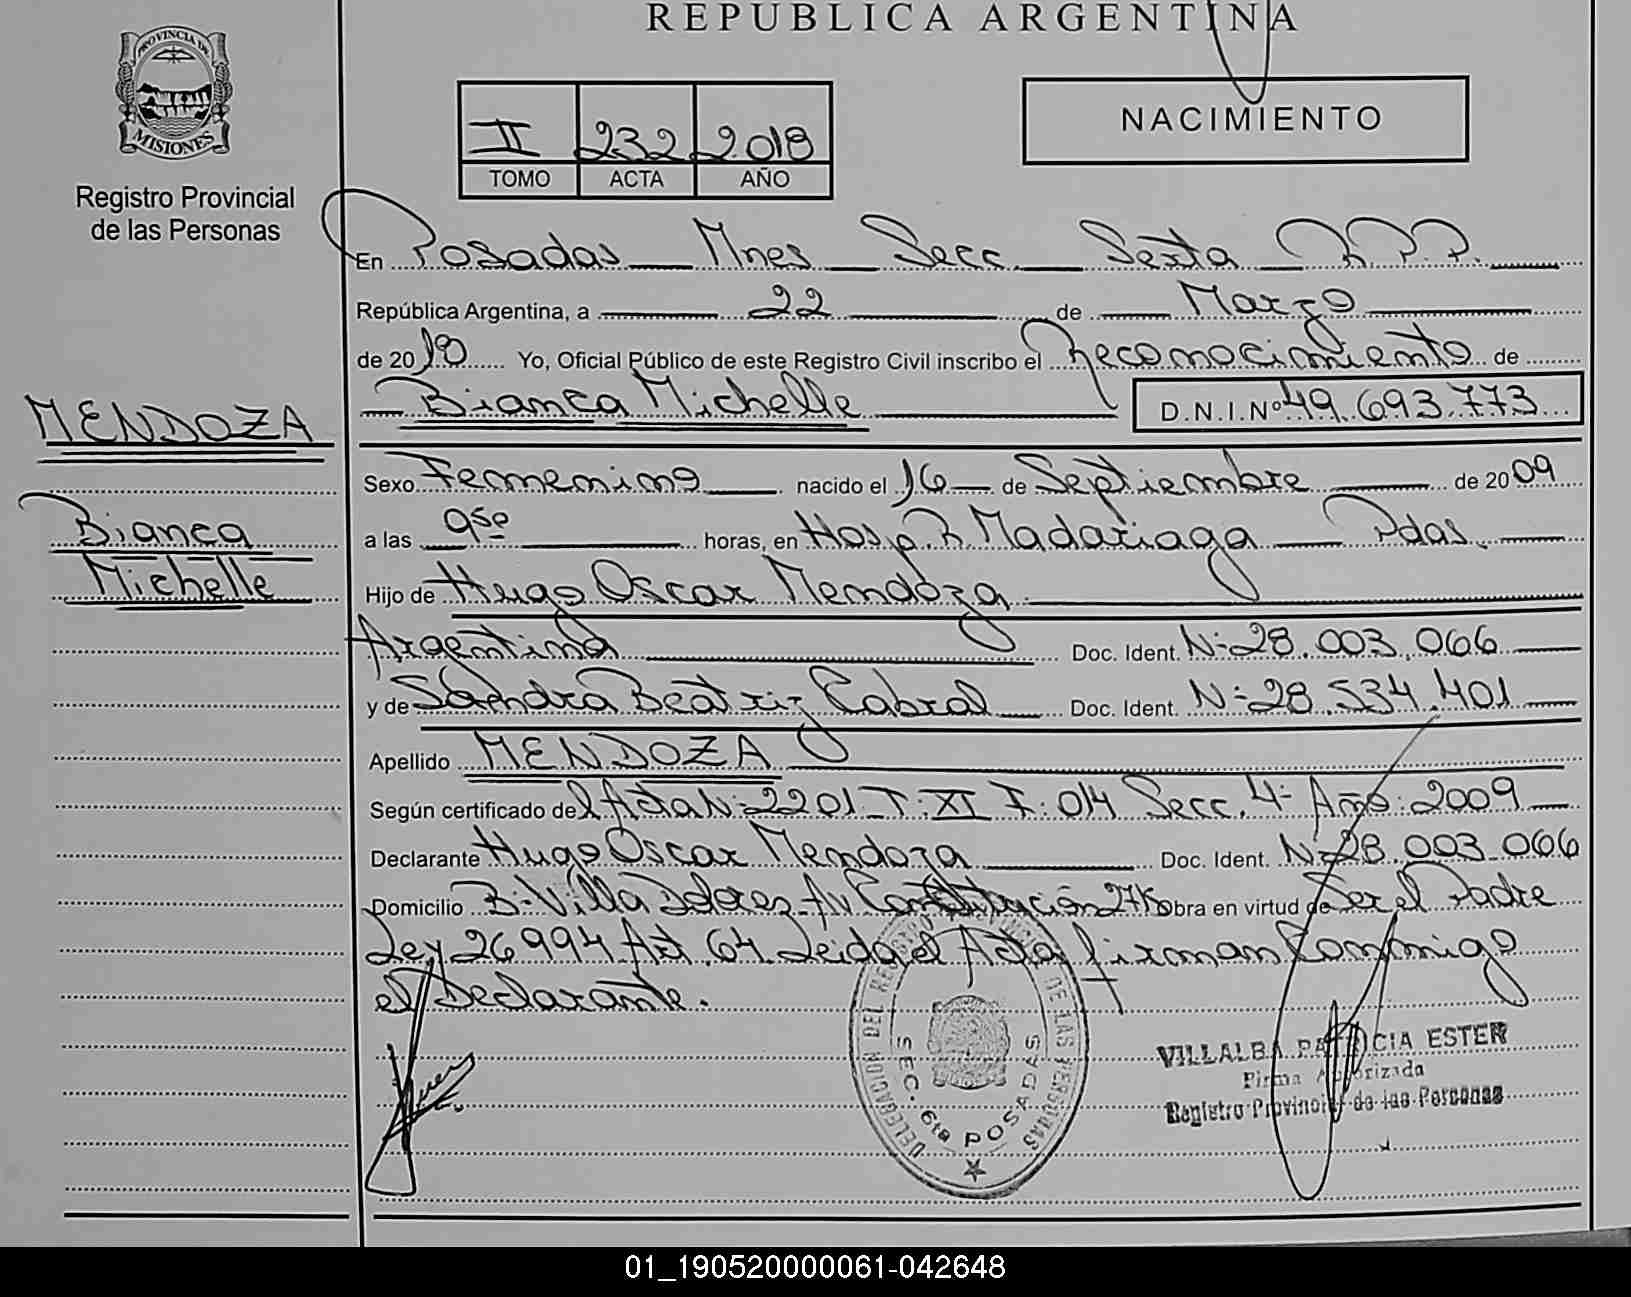 REPUBLICA ARGENTINA
PROVINCIA DE
MISIONES
Registro Provincial
de las Personas
II 232 2.018
TOMO ACTA AÑO
NACIMIENTO
En Posadas Mnes Secc. Sexta R.P.P.
República Argentina, a 22 de Marzo
de 2018 Yo, Oficial Público de este Registro Civil inscribo el Reconocimiento de
Bianca Michelle D.N.I.Nº 49.693.773
MENDOZA
Bianca
Michelle
Sexo Femenino nacido el 16 de Septiembre de 2009
a las 9:50 horas, en Hosp. R. Madariaga Pdas.
Hijo de Hugo Oscar Mendoza
Argentina Doc. Ident. Nº 28.003.066
y de Sandra Beatriz Cabral Doc. Ident. Nº 28.534.401
Apellido MENDOZA
Según certificado del Acta Nº 2201 T: XI F: 014 Secc. 4º Año: 2009
Declarante Hugo Oscar Mendoza Doc. Ident. Nº 28.003.066
Domicilio Bº Villa Dolores Av Constitución Obra en virtud de Ser el Padre
Ley 26994 Art. 64 Leida el Acta firman Conmigo
el Declarante.
DELEGACION DEL REGISTRO PROVINCIAL DE LAS PERSONAS
SEC. 6ta POSADAS
VILLALBA PATRICIA ESTER
Firma Autorizada
Registro Provincial de las Personas
01_190520000061-042648